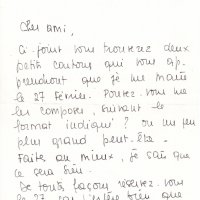 Cher ami,
Ci-joint vous trouverez deux
petits cartons qui vous ap-
prendront que je me marie
le 27 février. Pouvez-vous me
les composer, suivant le
format indiqué ? ou un peu
plus grand peut-être.
Faites au mieux, je sais que
ce sera bien.
De toute façon réservez-vous
le 27 car j'espère bien que